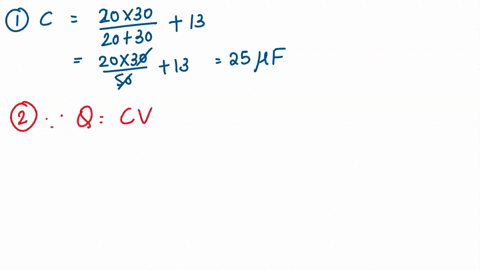 ① C = 20×30/20+30 + 13
= 20×30/50 + 13 = 25 μF
② ∵ Q = CV